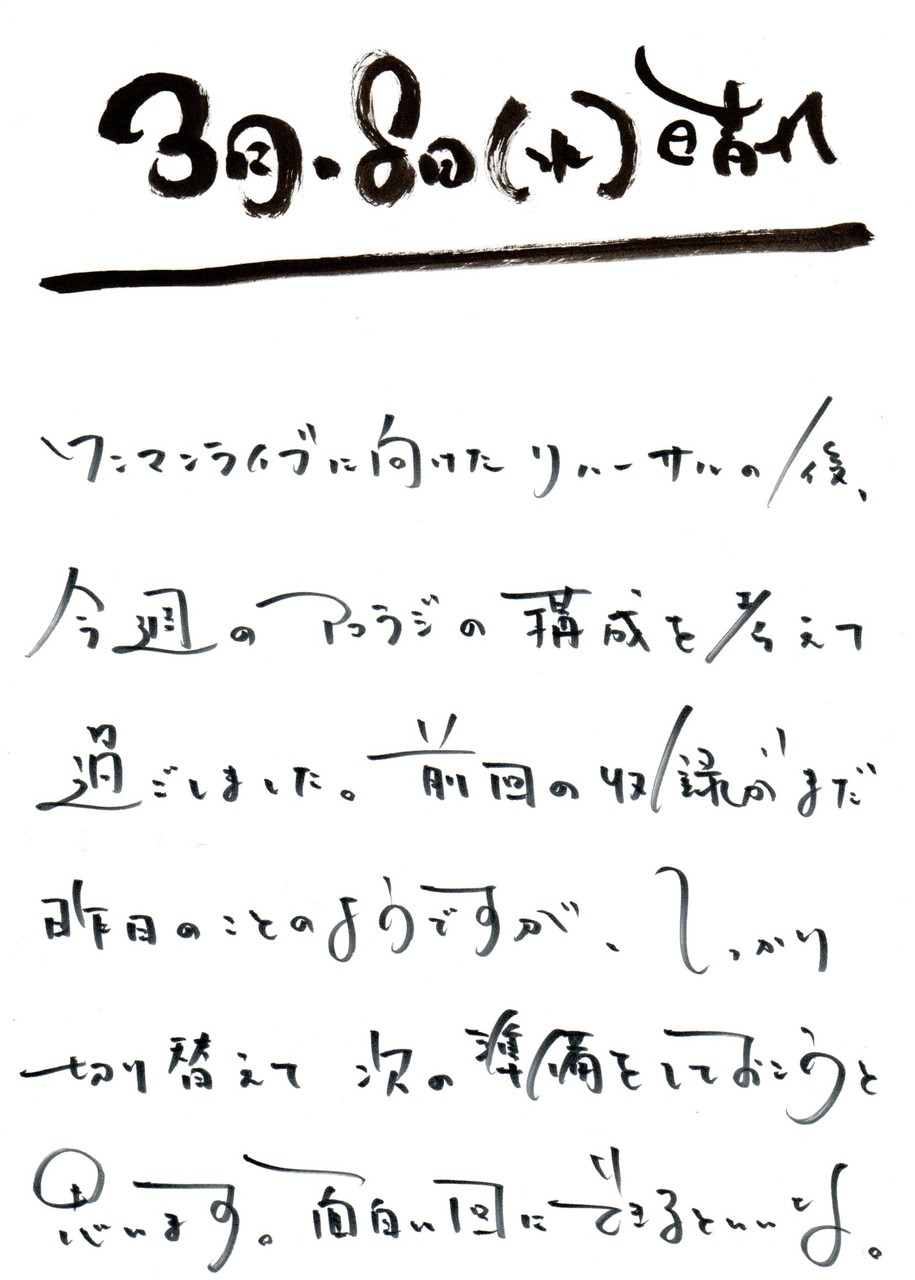 3月・8日(水)晴れ
ワンマンライブに向けたリハーサルの後、
今週のアコラジの構成を考えて
過ごしました。前回の収録がまだ
昨日のことのようですが、しっかり
切り替えて次の準備をしておこうと
思います。面白い回にできるといいな。